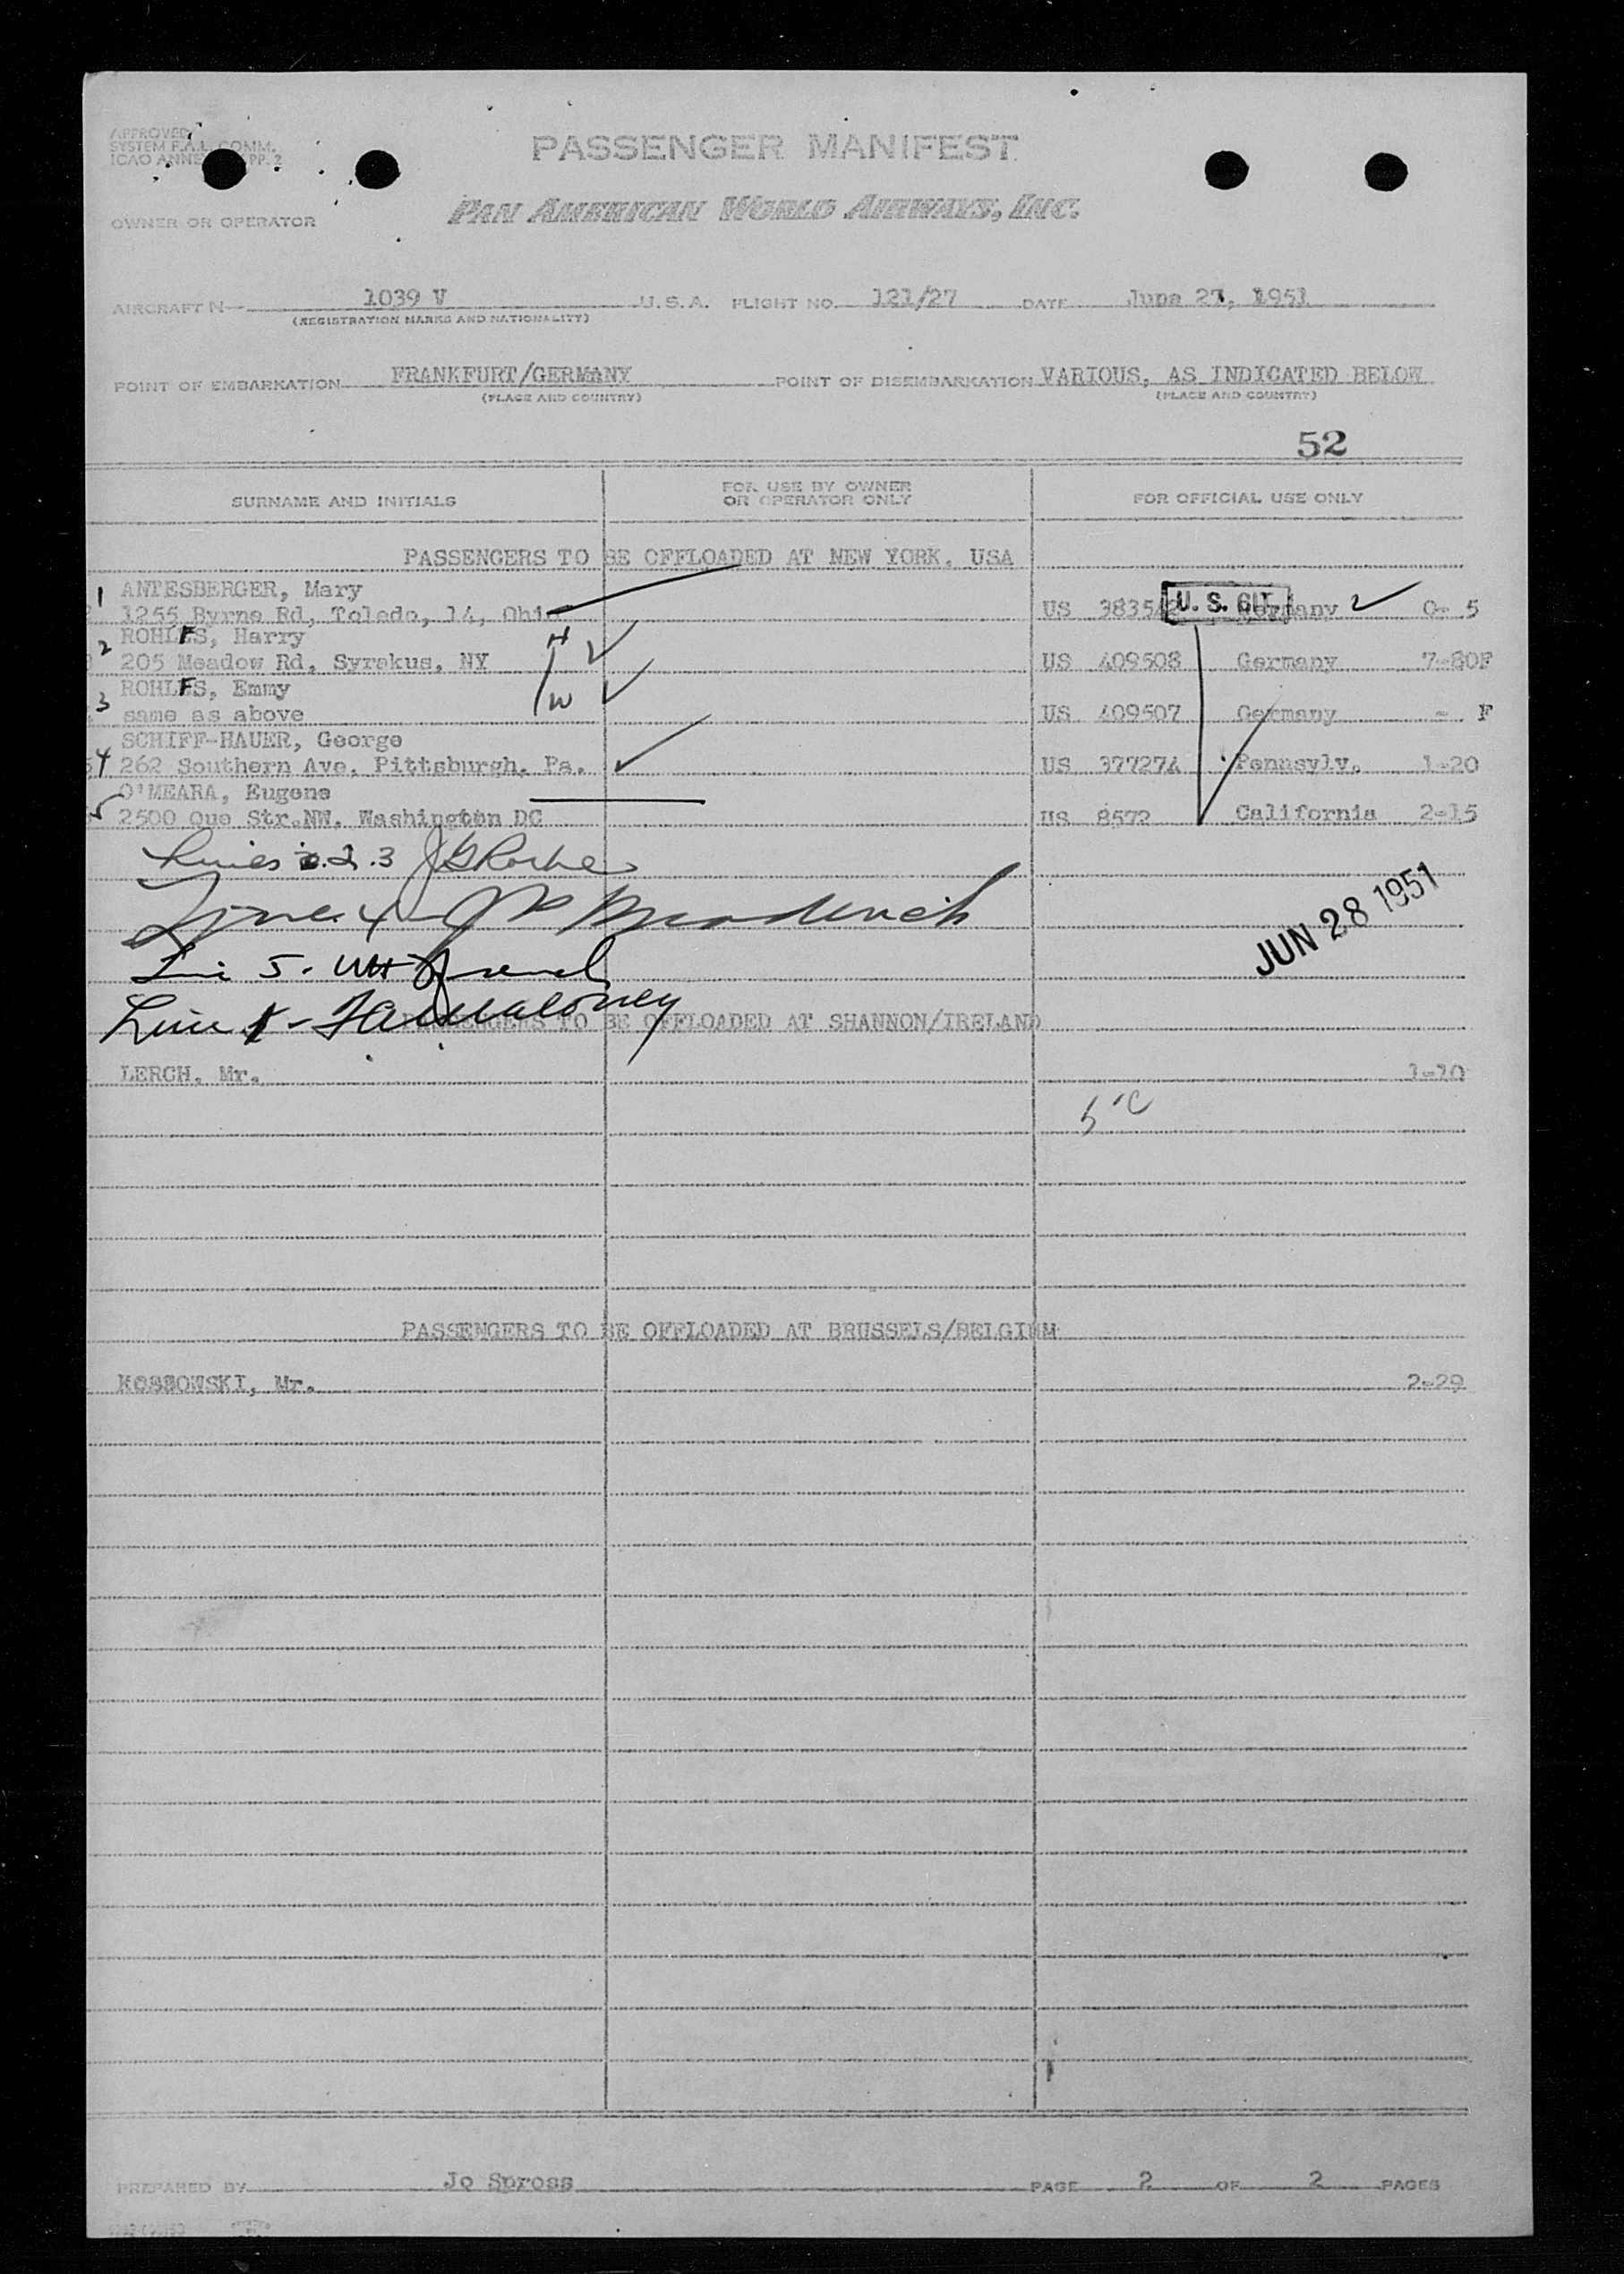 APPROVED
SYSTEM F.A.L. COMM.
ICAO ANNE PP. 2
PASSENGER MANIFEST
OWNER OR OPERATOR PAN AMERICAN WORLD AIRWAYS, INC.
AIRCRAFT N 1039 V U. S. A. FLIGHT NO. 121/27 DATE June 27, 1951
(REGISTRATION MARKS AND NATIONALITY)
POINT OF EMBARKATION FRANKFURT/GERMANY POINT OF DISEMBARKATION VARIOUS, AS INDICATED BELOW
(PLACE AND COUNTRY) (PLACE AND COUNTRY)
52
SURNAME AND INITIALS FOR USE BY OWNER OR OPERATOR ONLY FOR OFFICIAL USE ONLY
PASSENGERS TO BE OFFLOADED AT NEW YORK, USA
1 ANTESBERGER, Mary
1255 Byrne Rd, Toledo, 14, Ohio US 38354 U. S. CIT Germany 0- 5
2 ROHLFS, Harry H
205 Meadow Rd, Syrakus, NY US 409508 Germany 7-80F
3 ROHLFS, Emmy W
same as above US 409507 Germany - F
4 SCHIFF-HAUER, George
262 Southern Ave. Pittsburgh, Pa. US 377274 Pennsylv. 1-20
5 O'MEARA, Eugene
2500 Que Str.NW. Washington DC US 8572 California 2-15
Lines 2.3
Line 4
JUN 28 1951
Line 5.
Line 1 - Maloney
PASSENGERS TO BE OFFLOADED AT SHANNON/IRELAND
LERCH, Mr. 1-10
PASSENGERS TO BE OFFLOADED AT BRUSSELS/BELGIUM
KOSSOWSKI, Mr. 2-29
PREPARED BY Jo Spross PAGE 2 OF 2 PAGES